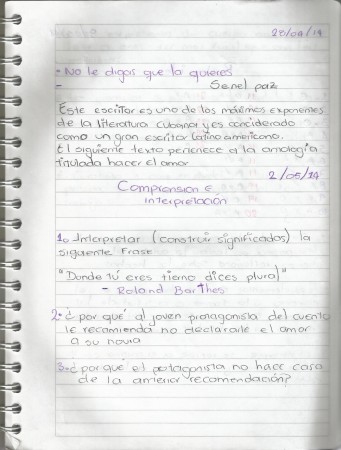 28/04/14
- No le digas que la quieres
- Senel paz
Este escritor es uno de los máximos exponentes
de la literatura cubana y es considerado
como un gran escritor latino americano.
El siguiente texto pertenece a la antología
titulada hacer el amor
2/05/14
Comprension e
interpretación
1. Interpretar (construir significados) la
siguiente Frase
"Donde tú eres tierno dices plural"
- Roland Barthes
2. ¿por qué al joven protagonista del cuento
le recomienda no declararle el amor
a su novia
3. ¿por qué el protagonista no hace caso
de la anterior recomendación?